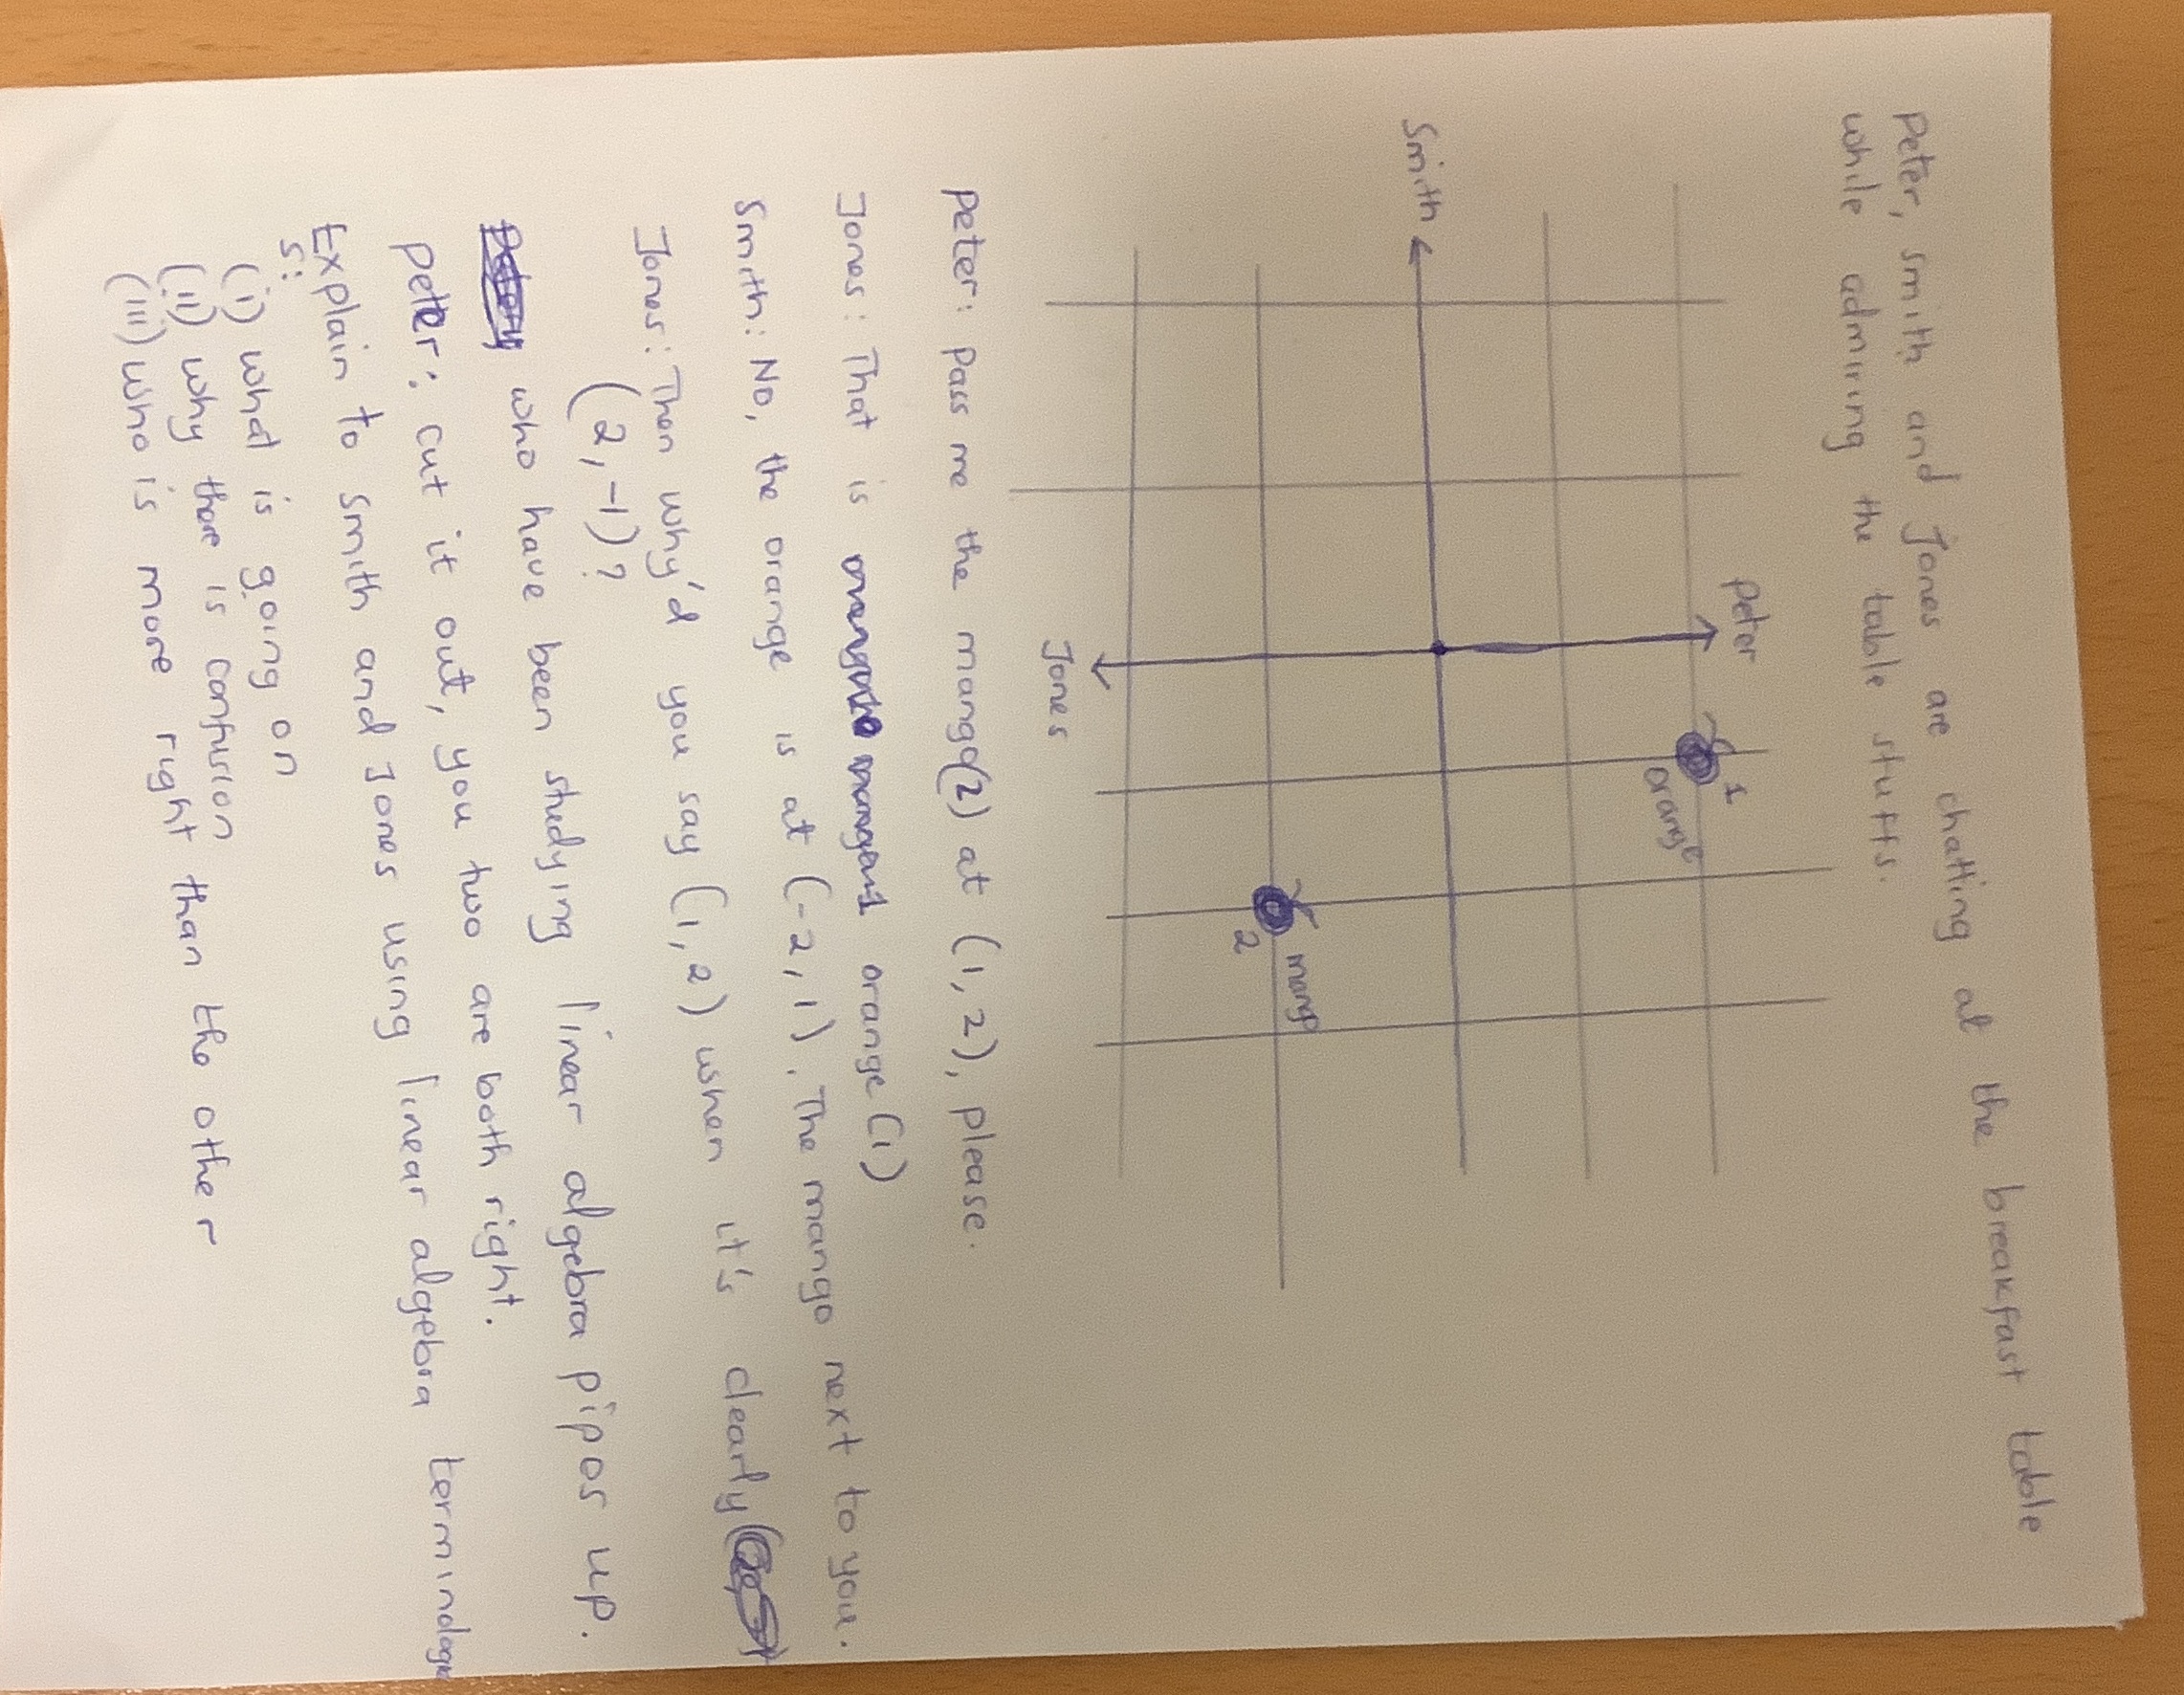 Peter, Smith and Jones are chatting at the breakfast table
while admiring the table stuffs.
Peter
1
orange
Smith
mango
2
Jones
Peter: Pass me the mango(2) at (1, 2), please.
Jones: That is orange(1)
Smith: No, the orange is at (-2, 1). The mango next to you.
Jones: Then why'd you say (1, 2) when it's clearly
(2, -1)?
who have been studying linear algebra pipos up.
Peter: cut it out, you two are both right.
Explain to Smith and Jones using linear algebra terminologie
s:
(i) what is going on
(ii) why there is confusion
(iii) who is more right than the other